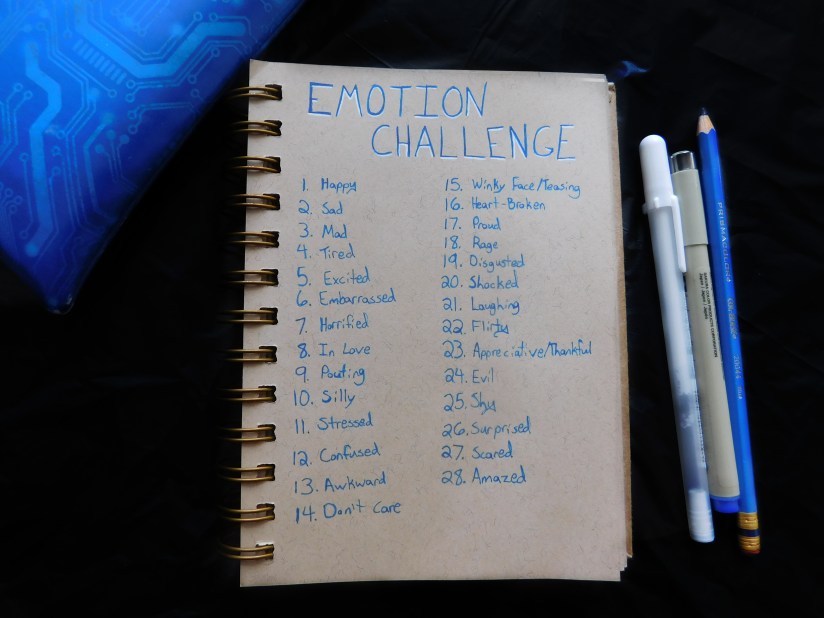 EMOTION
CHALLENGE
1. Happy
2. Sad
3. Mad
4. Tired
5. Excited
6. Embarrassed
7. Horrified
8. In Love
9. Pouting
10. Silly
11. Stressed
12. Confused
13. Awkward
14. Don't Care
15. Winky Face/Teasing
16. Heart-Broken
17. Proud
18. Rage
19. Disgusted
20. Shocked
21. Laughing
22. Flirty
23. Appreciative/Thankful
24. Evil
25. Shy
26. Surprised
27. Scared
28. Amazed
PRISMACOLOR